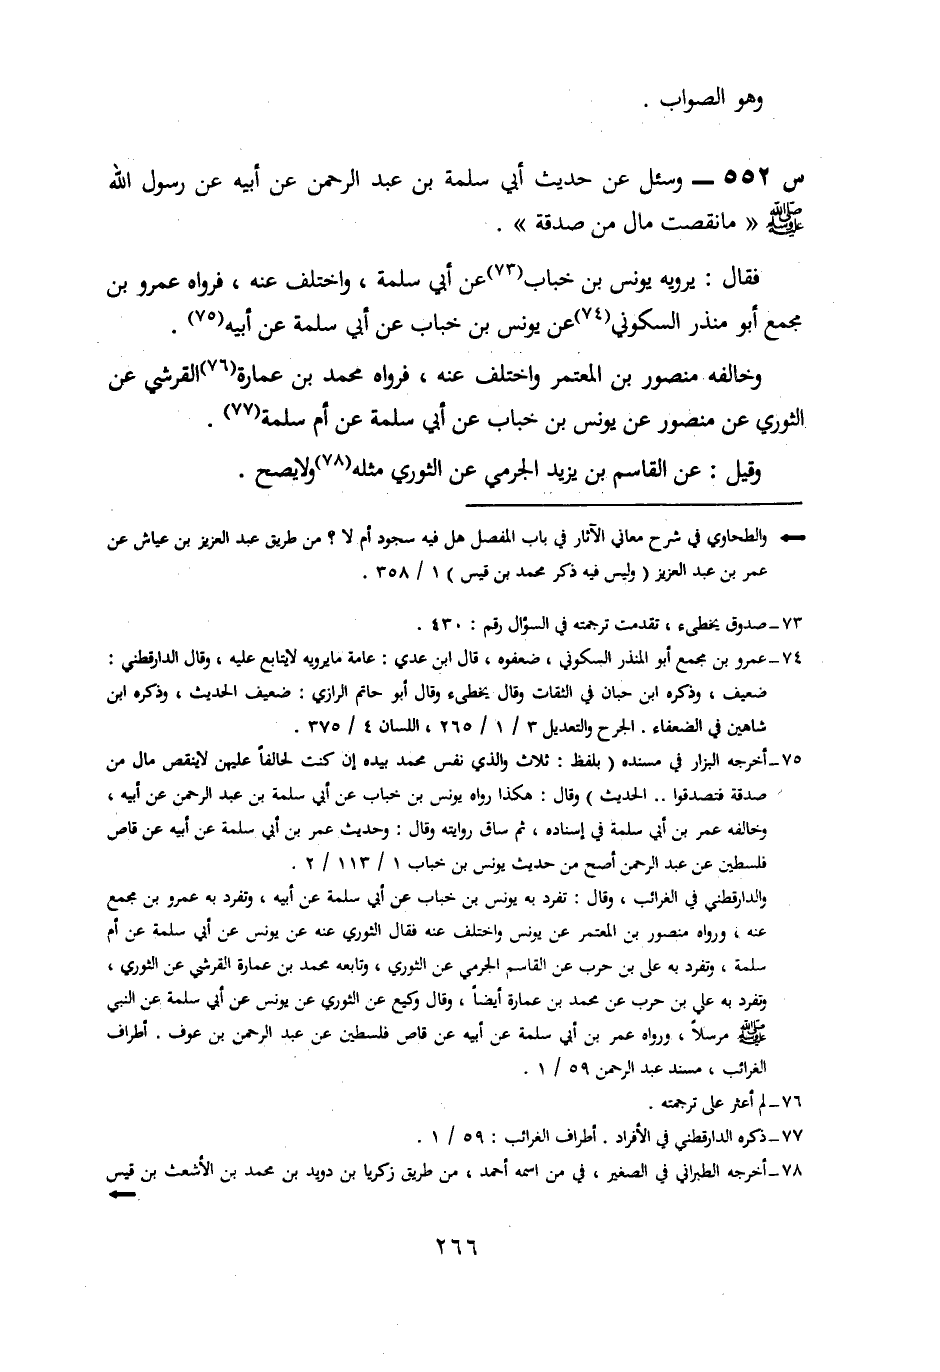 وهو الصواب .
س ٥٥٢ ــ وسئل عن حديث أبي سلمة بن عبد الرحمن عن أبيه عن رسول الله
ﷺ « مانقصت مال من صدقة » .
فقال : يرويه يونس بن خباب(٧٣)عن أبي سلمة ، واختلف عنه ، فرواه عمرو بن
مجمع أبو منذر السكوني(٧٤)عن يونس بن خباب عن أبي سلمة عن أبيه(٧٥) .
وخالفه منصور بن المعتمر واختلف عنه ، فرواه محمد بن عمارة(٧٦)القرشي عن
الثوري عن منصور عن يونس بن خباب عن أبي سلمة عن أم سلمة(٧٧) .
وقيل : عن القاسم بن يزيد الجرمي عن الثوري مثله(٧٨)ولايصح .
والطحاوي في شرح معاني الآثار في باب المفصل هل فيه سجود أم لا ؟ من طريق عبد العزيز بن عياش عن
عمر بن عبد العزيز ( وليس فيه ذكر محمد بن قيس ) ١ / ٣٥٨ .
٧٣ـ صدوق يخطىء ، تقدمت ترجمته في السؤال رقم : ٤٣٠ .
٧٤ـ عمرو بن مجمع أبو المنذر السكوني ، ضعفوه ، قال ابن عدي : عامة مايرويه لايتابع عليه ، وقال الدارقطني :
ضعيف ، وذكره ابن حبان في الثقات وقال يخطىء وقال أبو حاتم الرازي : ضعيف الحديث ، وذكره ابن
شاهين في الضعفاء . الجرح والتعديل ٣ / ١ / ٢٦٥ ، اللسان ٤ / ٣٧٥ .
٧٥ـ أخرجه البزار في مسنده ( بلفظ : ثلاث والذي نفس محمد بيده إن كنت لحالفاً عليهن لاينقص مال من
صدقة فتصدقوا .. الحديث ) وقال : هكذا رواه يونس بن خباب عن أبي سلمة بن عبد الرحمن عن أبيه ،
وخالفه عمر بن أبي سلمة في إسناده ، ثم ساق روايته وقال : وحديث عمر بن أبي سلمة عن أبيه عن قاص
فلسطين عن عبد الرحمن أصح من حديث يونس بن خباب ١ / ١١٣ / ٢ .
والدارقطني في الغرائب ، وقال : تفرد به يونس بن خباب عن أبي سلمة عن أبيه ، وتفرد به عمرو بن مجمع
عنه ، ورواه منصور بن المعتمر عن يونس واختلف عنه فقال الثوري عنه عن يونس عن أبي سلمة عن أم
سلمة ، وتفرد به على بن حرب عن القاسم الجرمي عن الثوري ، وتابعه محمد بن عمارة القرشي عن الثوري ،
وتفرد به علي بن حرب عن محمد بن عمارة أيضاً ، وقال وكيع عن الثوري عن يونس عن أبي سلمة عن النبي
ﷺ مرسلاً ، ورواه عمر بن أبي سلمة عن أبيه عن قاص فلسطين عن عبد الرحمن بن عوف . أطراف
الغرائب ، مسند عبد الرحمن ٥٩ / ١ .
٧٦ـ لم أعثر على ترجمته .
٧٧ـ ذكره الدارقطني في الأفراد . أطراف الغرائب : ٥٩ / ١ .
٧٨ـ أخرجه الطبراني في الصغير ، في من اسمه أحمد ، من طريق زكريا بن دويد بن محمد بن الأشعث بن قيس
٢٦٦